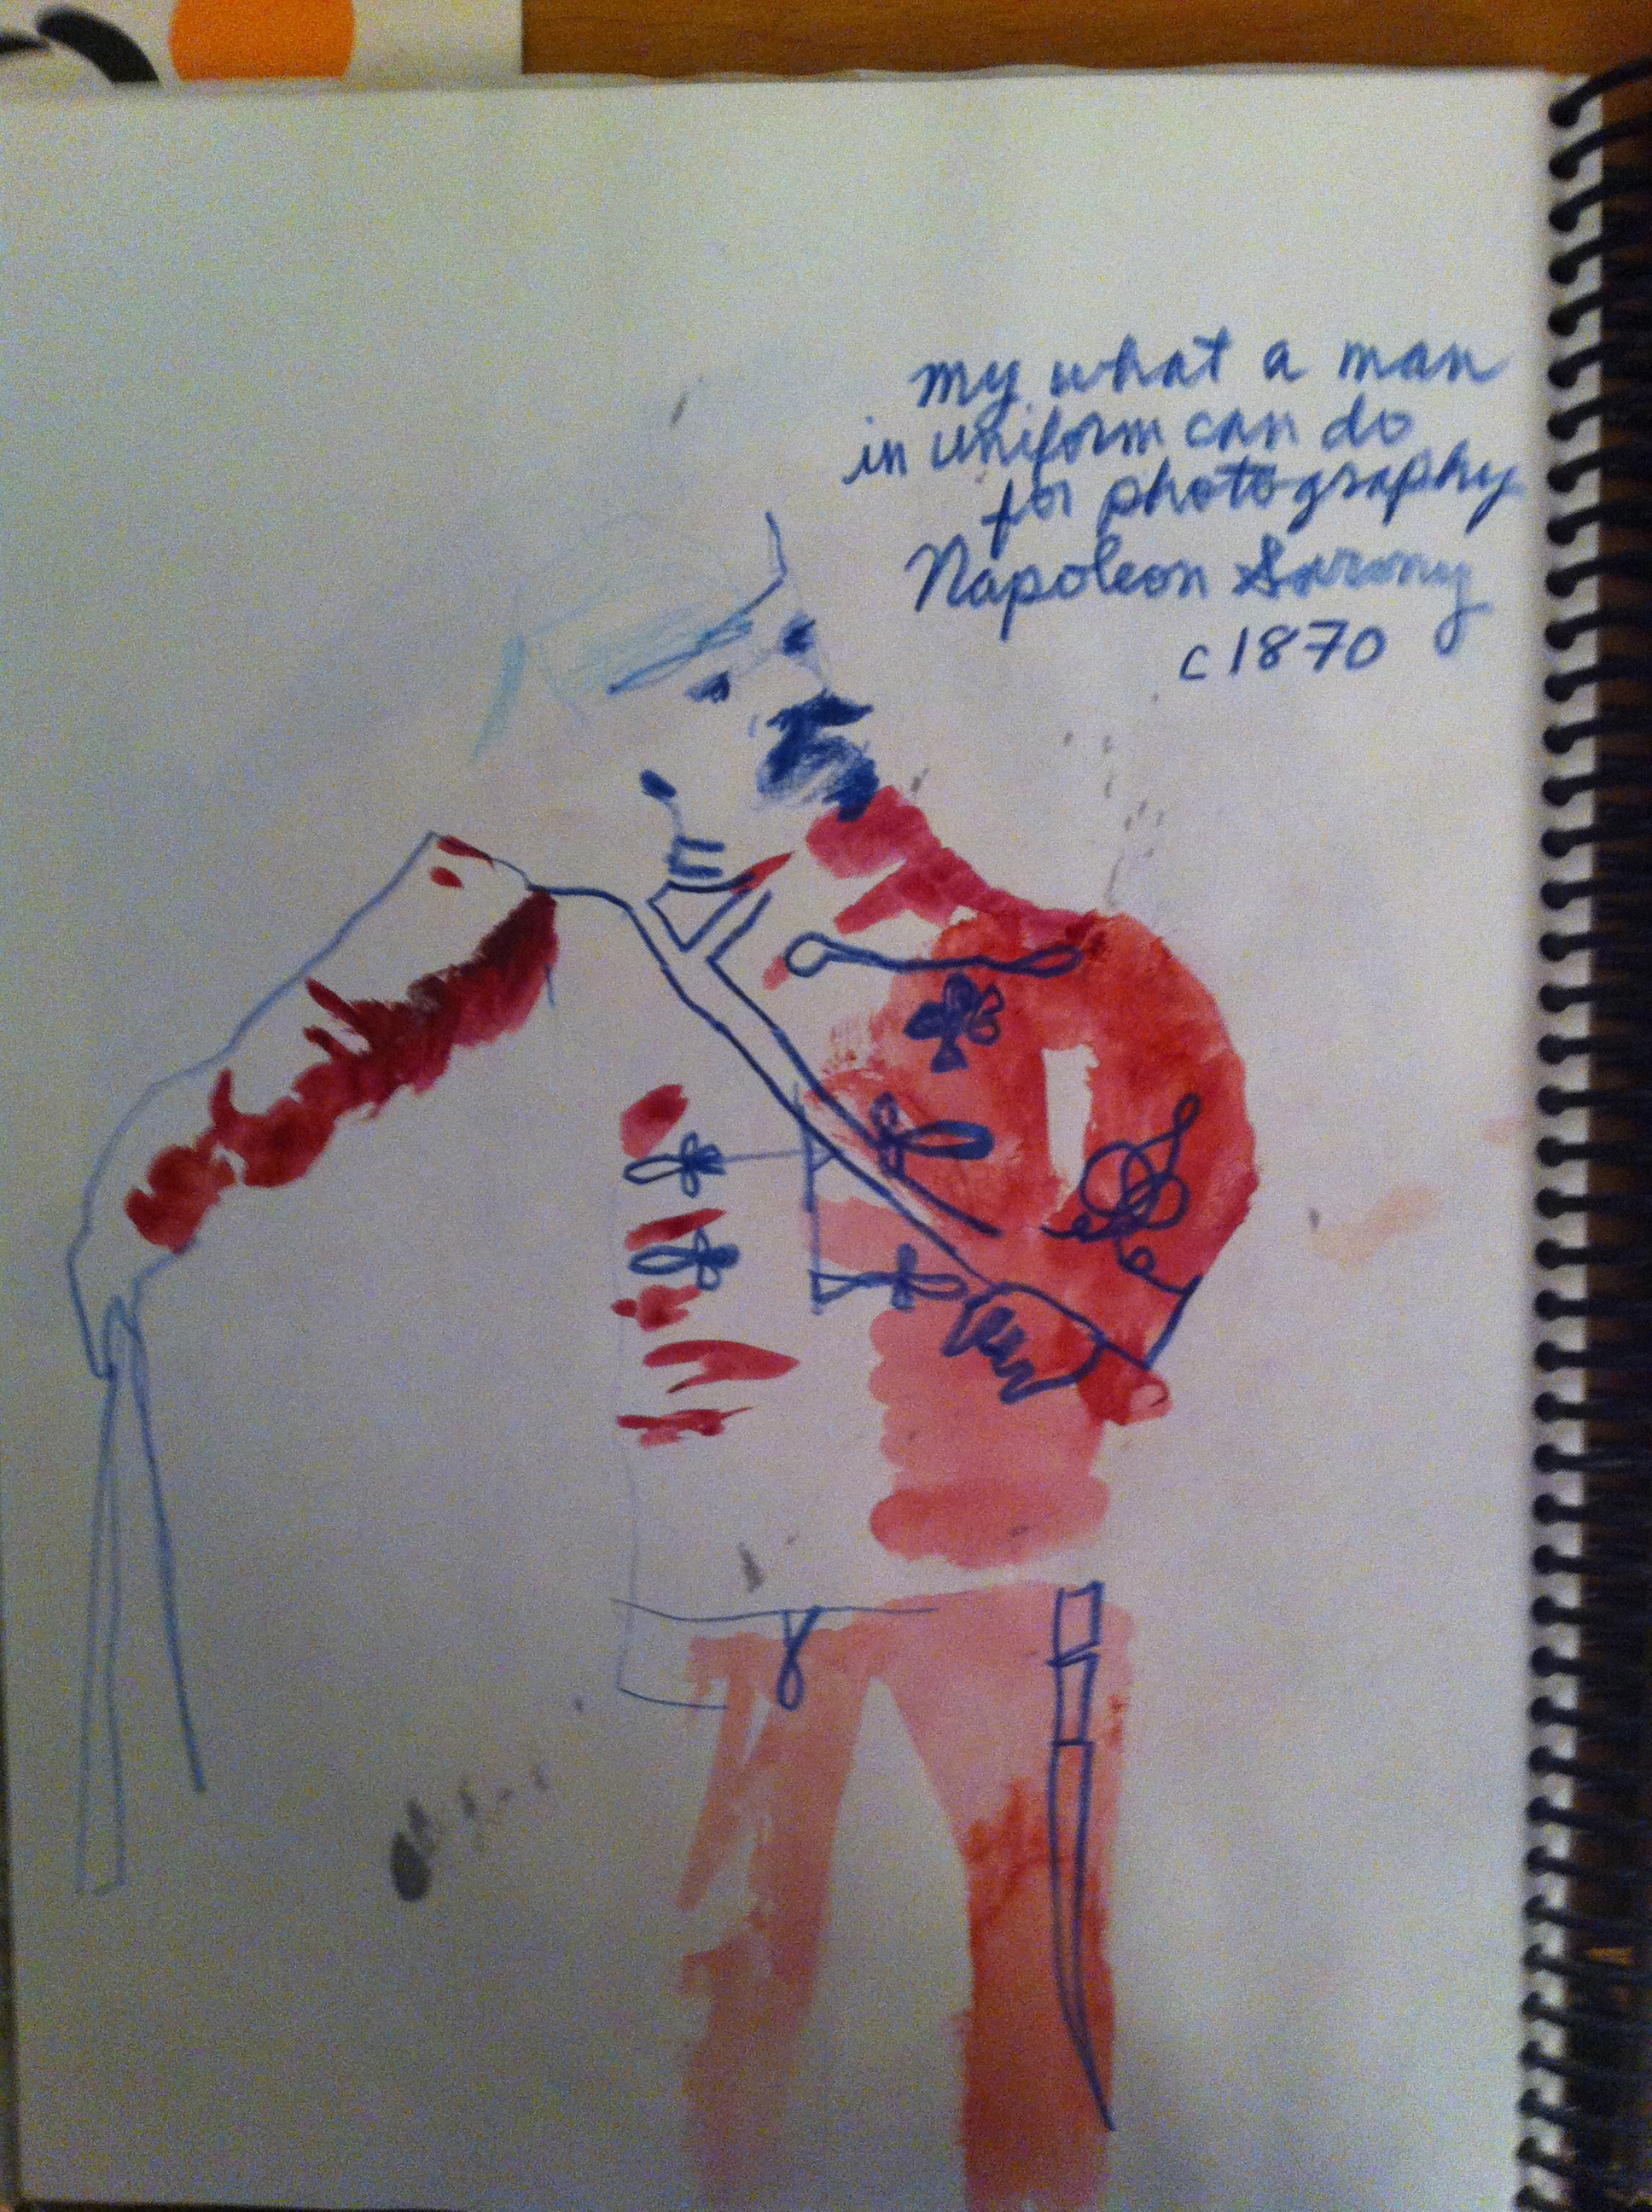 my what a man
in uniform can do
for photography
Napoleon Sarony
c 1870